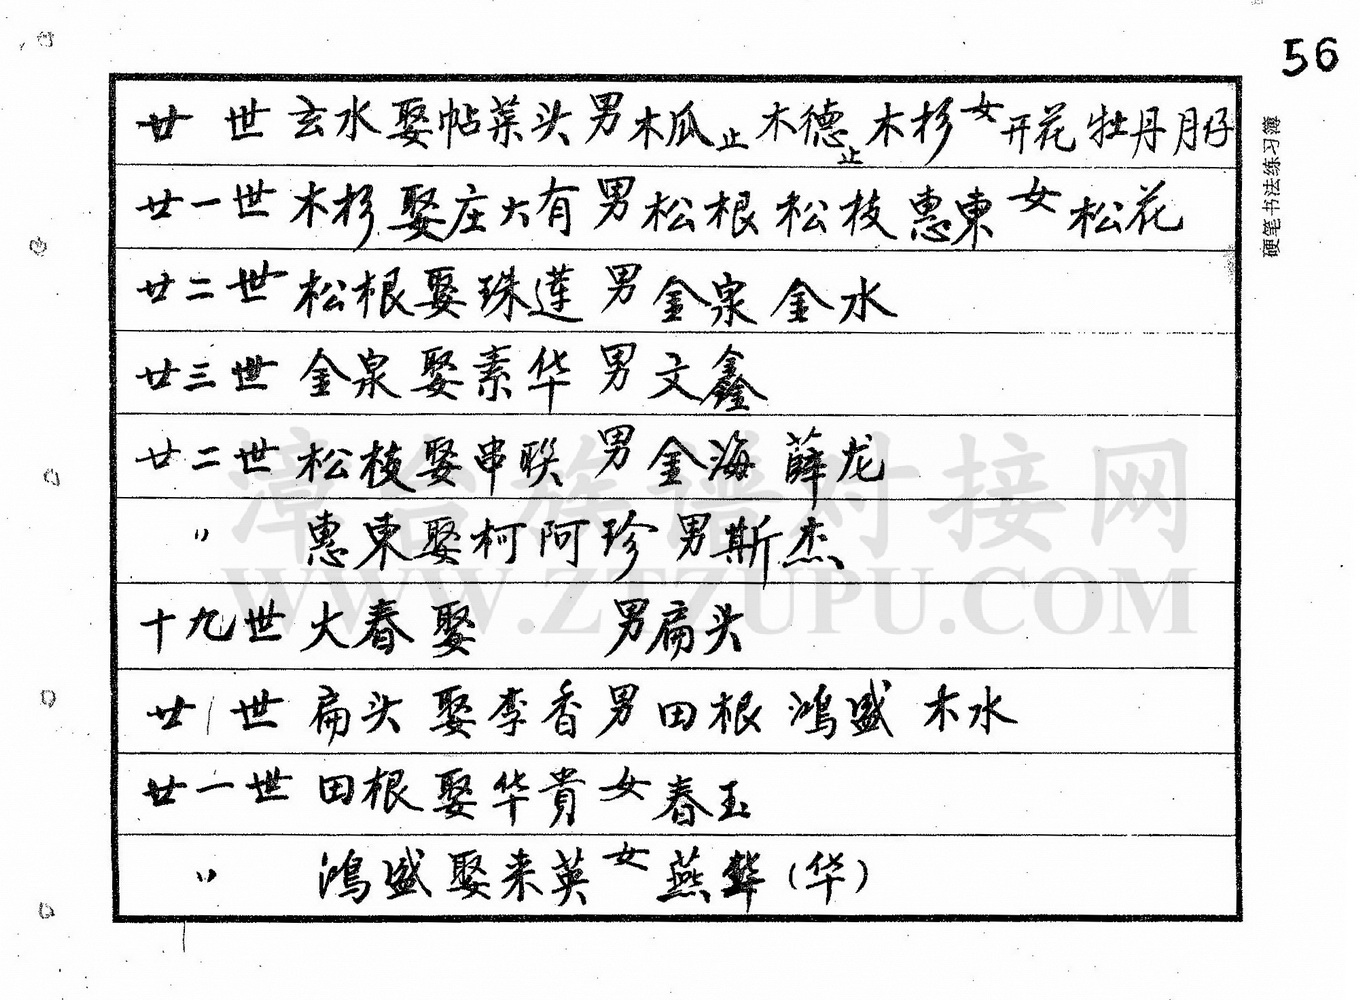 56
廿 世 玄水 娶帖菜头 男木瓜止 木德止 木杉 女开花 牡丹 月仔
廿一世 木杉 娶庄大有 男松根 松枝 惠東 女松花
廿二世 松根娶珠莲 男金泉 金水
廿三世 金泉娶素华 男文鑫
廿二世 松枝娶串联 男金海 薛龙
〃 惠東娶柯阿珍 男斯杰
十九世 大春娶 男扁头
廿 世 扁头 娶李香 男田根 鴻盛 木水
廿一世 田根娶华貴 女春玉
〃 鴻盛娶来英 女燕華(华)
硬笔书法练习簿
漳台族谱对接网
WWW.ZTZUPU.COM